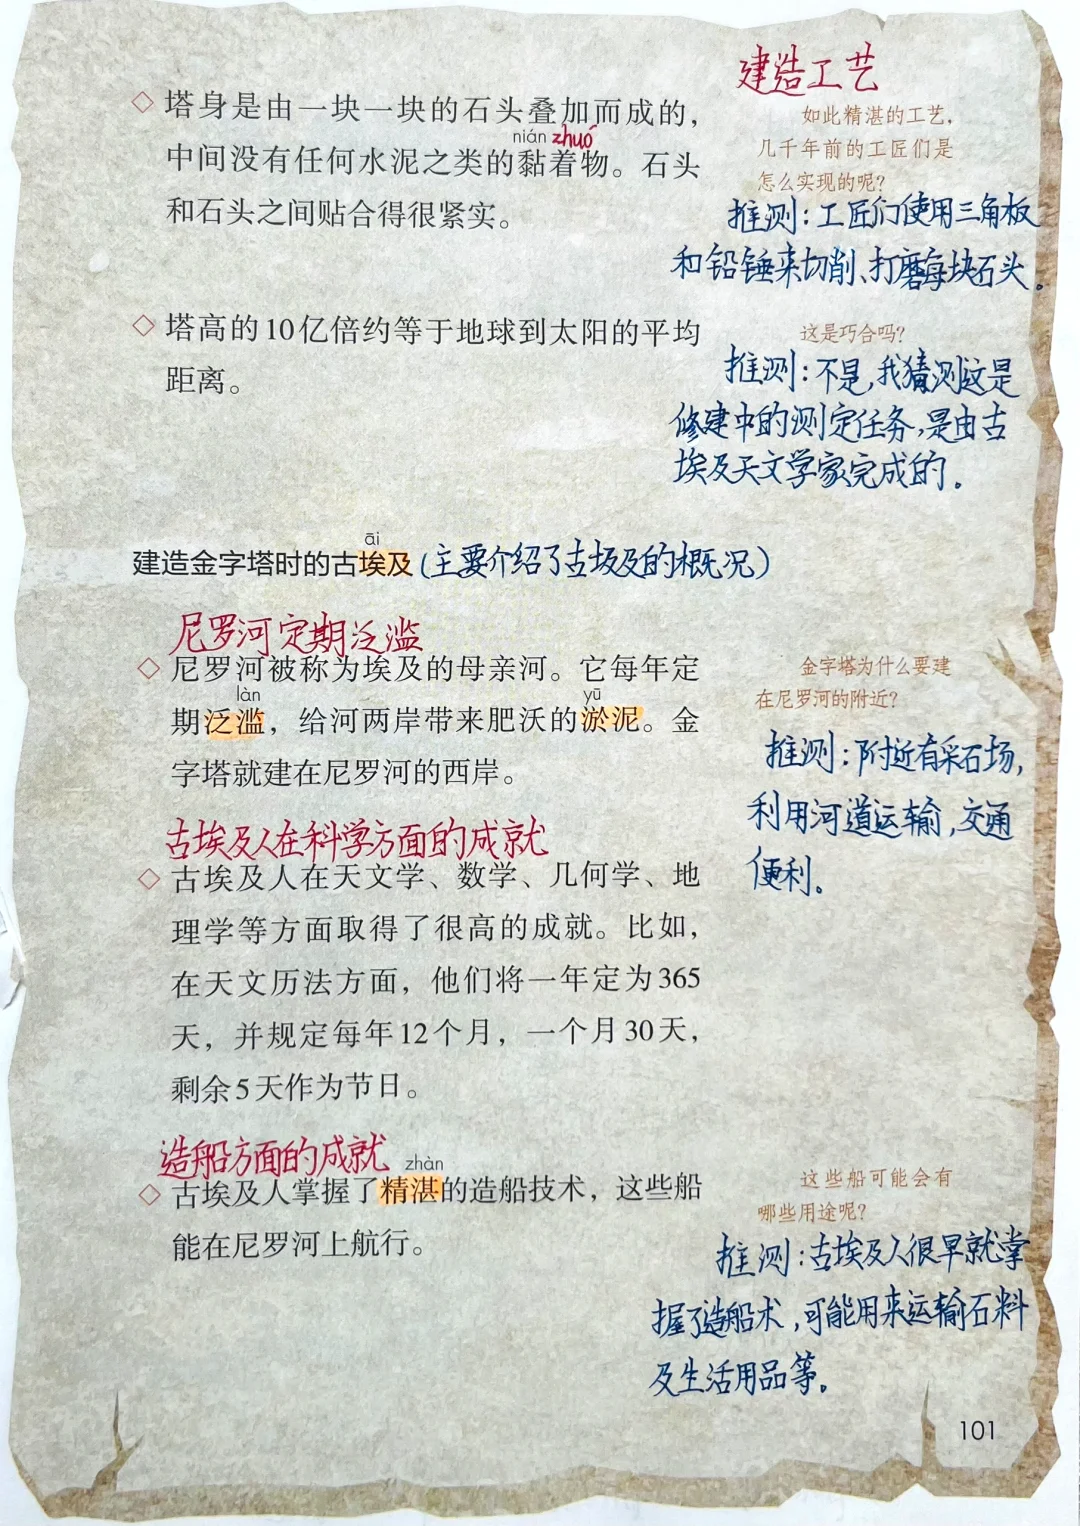 建造工艺
塔身是由一块一块的石头叠加而成的，
如此精湛的工艺，
nián zhuó
几千年前的工匠们是
中间没有任何水泥之类的黏着物。石头
怎么实现的呢？
和石头之间贴合得很紧实。
推测：工匠们使用三角板
和铅锤来切削、打磨每块石头。
塔高的10亿倍约等于地球到太阳的平均
距离。
这是巧合吗？
推测：不是，我猜测这是
修建中的测定任务，是由古
埃及天文学家完成的。
āi
建造金字塔时的古埃及（主要介绍了古埃及的概况）
尼罗河定期泛滥
尼罗河被称为埃及的母亲河。它每年定
làn yū
期泛滥，给河两岸带来肥沃的淤泥。金
字塔就建在尼罗河的西岸。
金字塔为什么要建
在尼罗河的附近？
推测：附近有采石场，
利用河道运输，交通
便利。
古埃及人在科学方面的成就
古埃及人在天文学、数学、几何学、地
理学等方面取得了很高的成就。比如，
在天文历法方面，他们将一年定为365
天，并规定每年12个月，一个月30天，
剩余5天作为节日。
造船方面的成就
zhàn
古埃及人掌握了精湛的造船技术，这些船
能在尼罗河上航行。
这些船可能会有
哪些用途呢？
推测：古埃及人很早就掌
握了造船术，可能用来运输石料
及生活用品等。
101